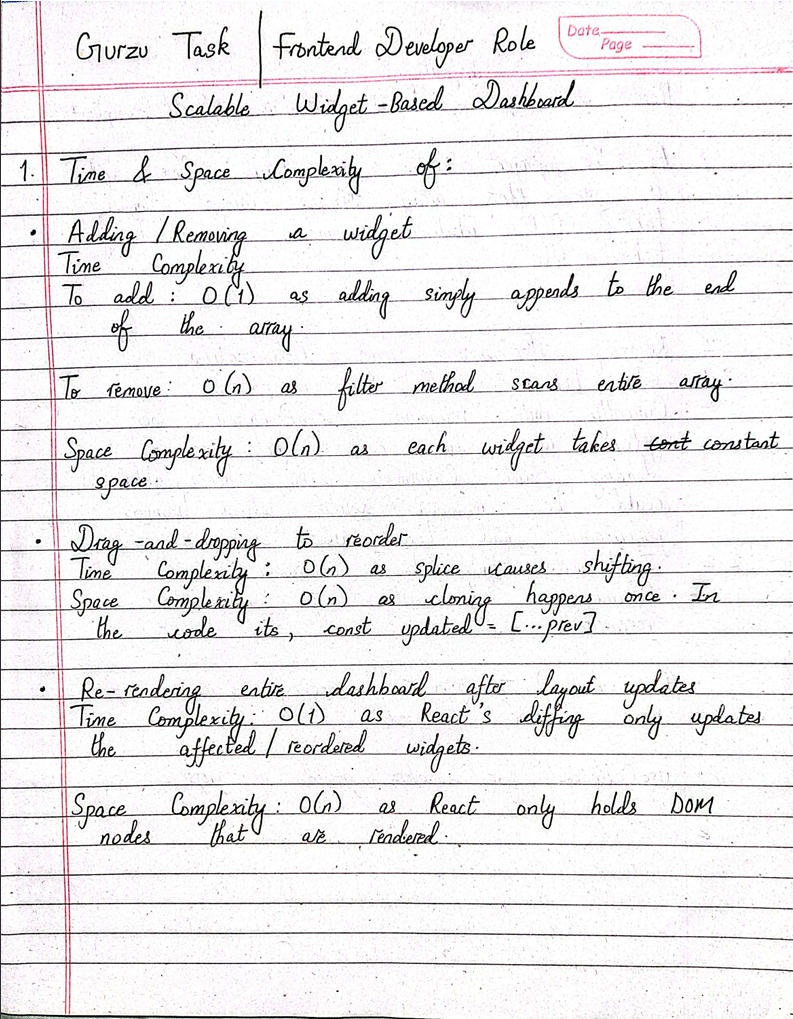 Gurzu Task | Frontend Developer Role
Date
Page
Scalable Widget-Based Dashboard
1. Time & Space Complexity of:
• Adding / Removing a widget
Time Complexity
To add : O(1) as adding simply appends to the end
of the array.
To remove: O(n) as filter method scans entire array.
Space Complexity : O(n) as each widget takes cont constant
space.
• Drag-and-dropping to reorder
Time Complexity : O(n) as splice causes shifting.
Space Complexity : O(n) as cloning happens once. In
the code its, const updated = [...prev].
• Re-rendering entire dashboard after layout updates
Time Complexity: O(1) as React's diffing only updates
the affected / reordered widgets.
Space Complexity: O(n) as React only holds DOM
nodes that are rendered.